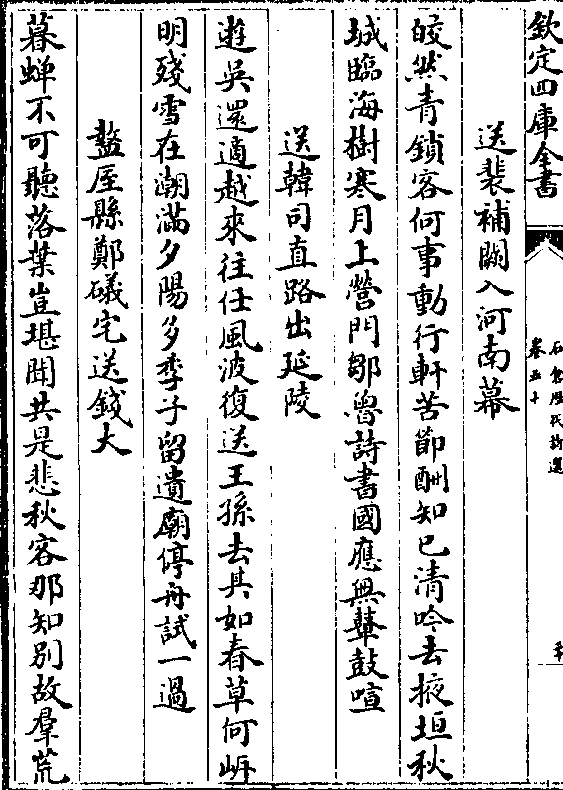 欽定四庫全書
石倉歷代詩選
卷五十
送裴補闕入河南幕
皎然青鎖客何事動行軒苦節酬知已清吟去掖垣秋
城臨海樹寒月上營門鄒魯詩書國應無鞞鼓喧
送韓司直路出延陵
遊吳還適越來往任風波復送王孫去其如春草何㟁
明殘雪在潮滿夕陽多季子留遺廟停舟試一過
盩厔縣鄭礒宅送錢大
暮蟬不可聽落葉豈堪聞共是悲秋客那知別故羣荒